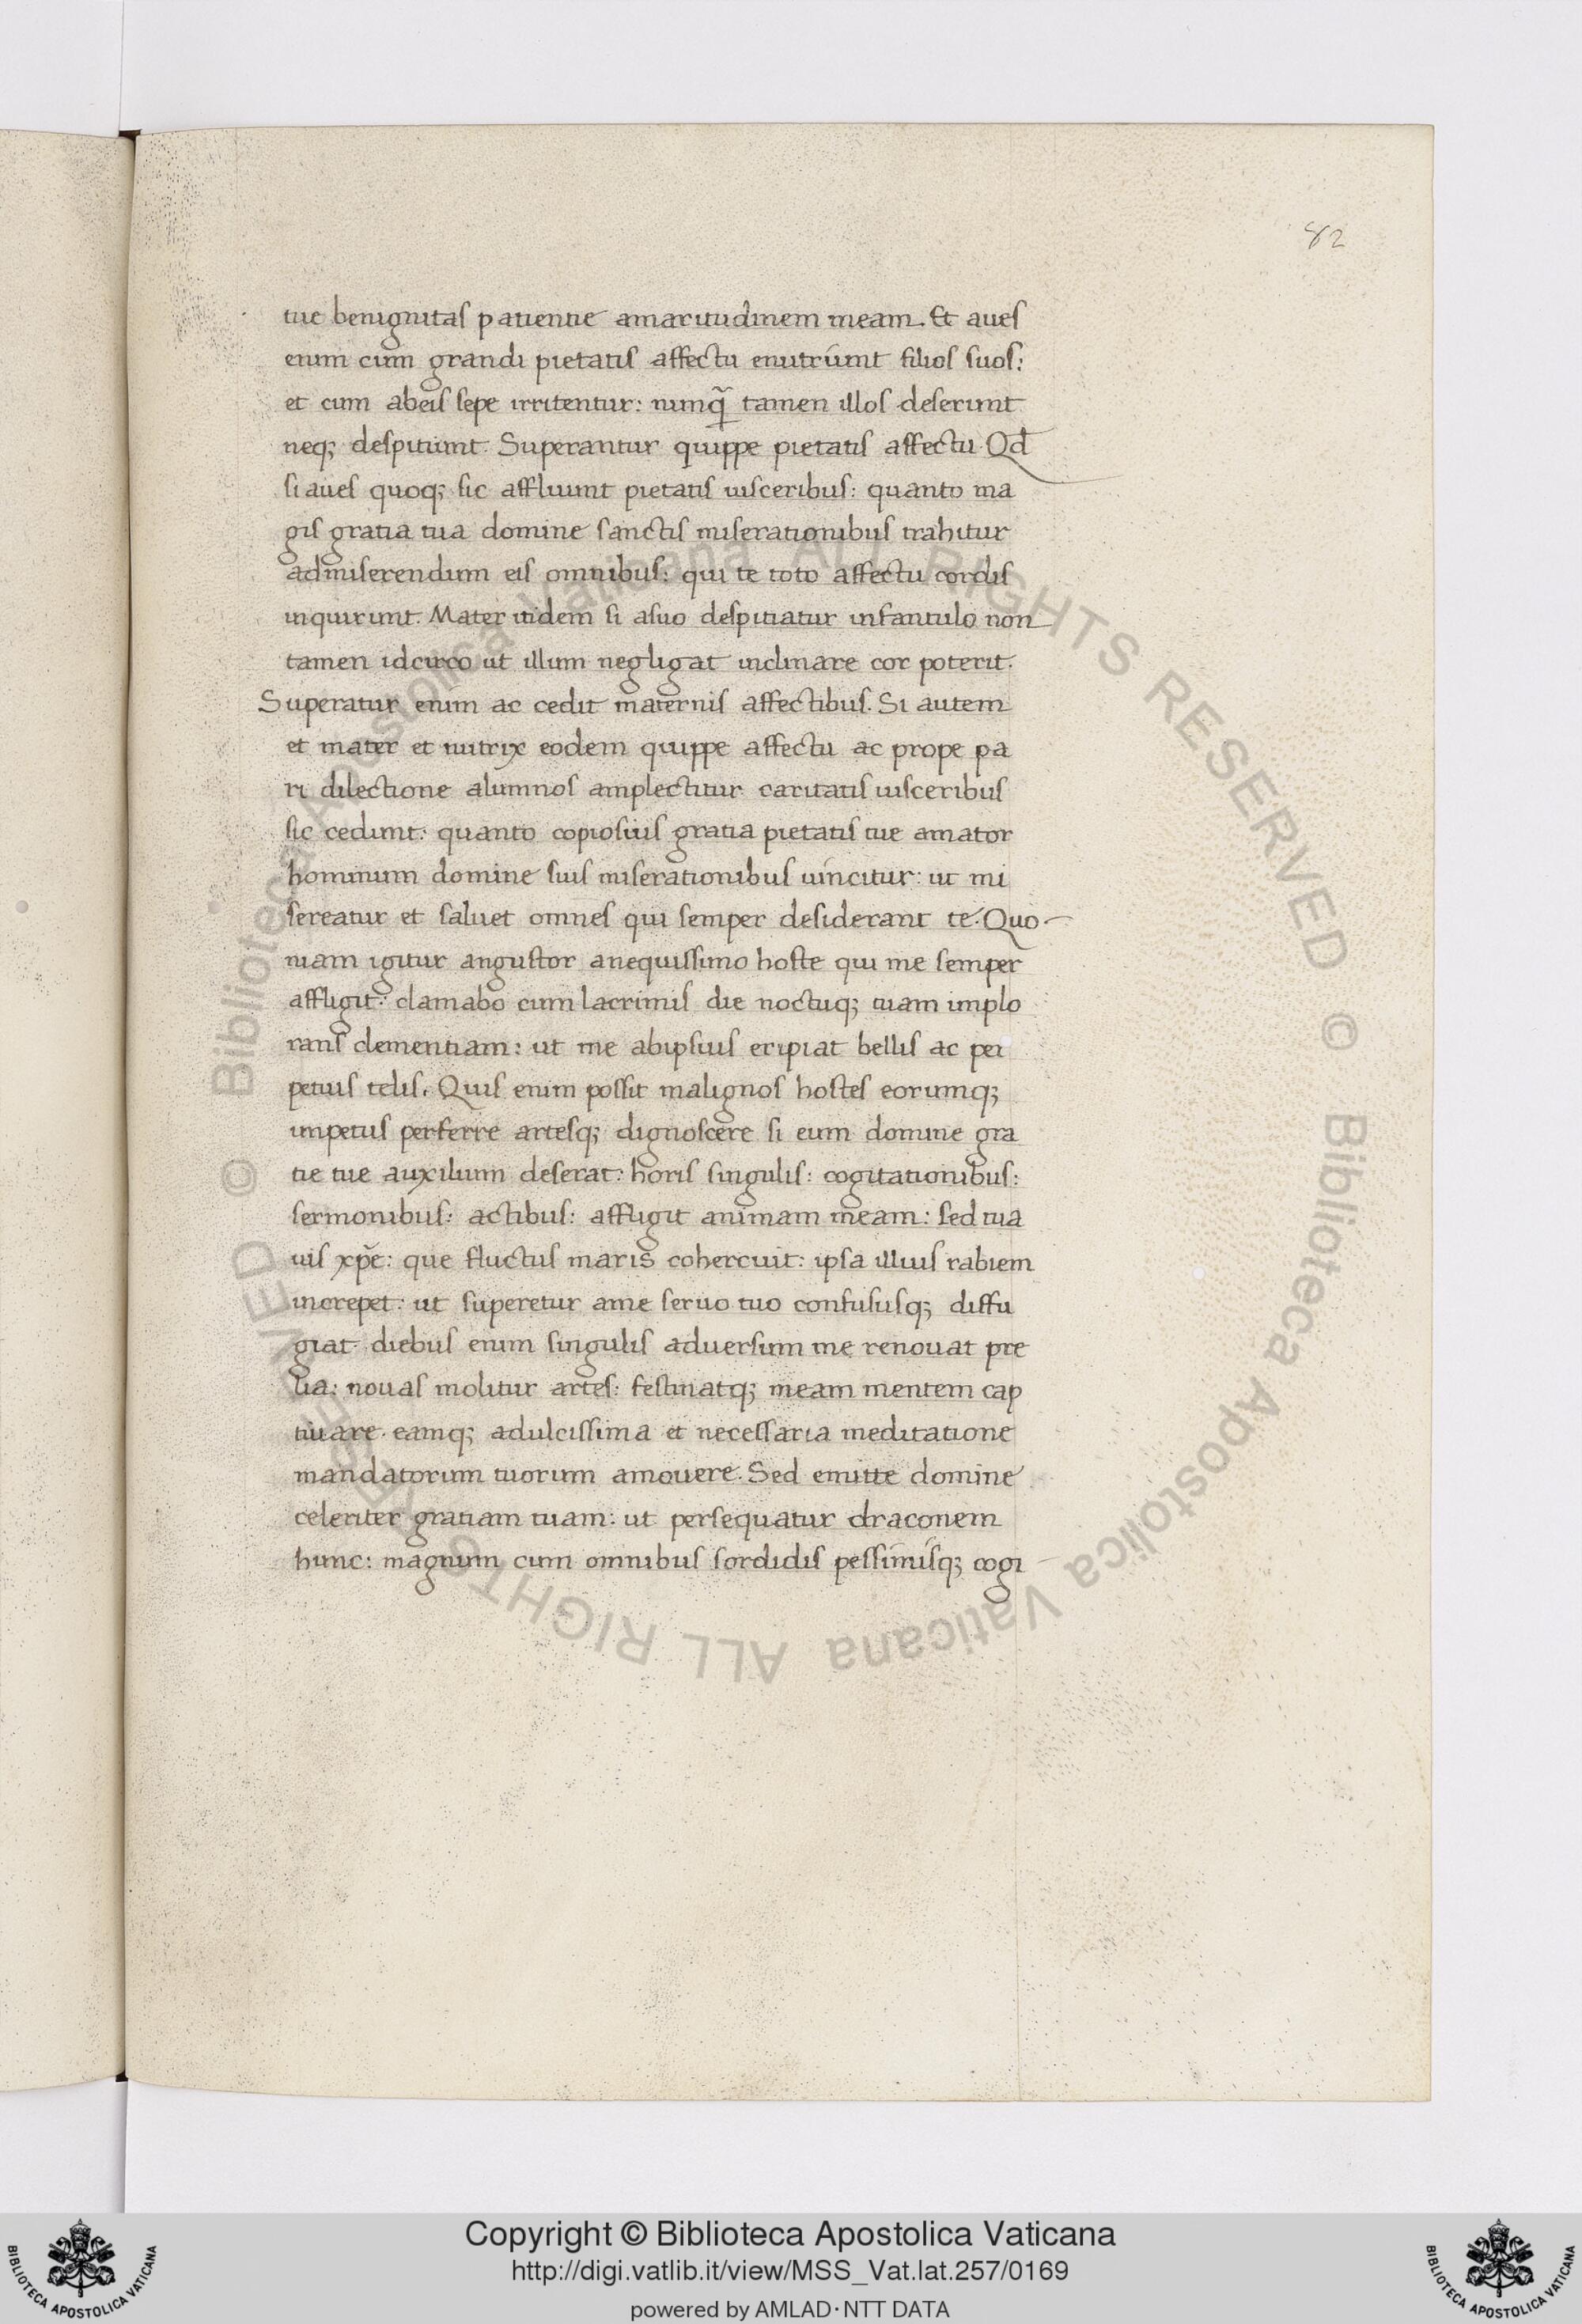 82
tue benignitas patientie amaritudinem meam. Et aues
enim cum grandi pietatis affectu enutriunt filios suos:
et cum abeis sepe irritentur: nunq̃ tamen illos deserunt
neq; despitiunt. Superantur quippe pietatis affectu. Qd̄
si aues quoq; sic affluunt pietatis uisceribus: quanto ma
gis gratia tua domine sanctis miserationibus trahitur
admiserendum eis omnibus: qui te toto affectu cordis
inquirunt. Mater itidem si asuo despitiatur infantulo non
tamen idcirco ut illum negligat inclinare cor poterit.
Superatur enim ac cedit maternis affectibus. Si autem
et mater et nutrix eodem quippe affectu ac prope pa
ri dilectione alumnos amplectitur caritatis uisceribus
sic cedunt: quanto copiosius gratia pietatis tue amator
hominum domine suis miserationibus uincitur: ut mi
sereatur et saluet omnes qui semper desiderant te. Quo
niam igitur angustor anequissimo hoste qui me semper
affligit: clamabo cum lacrimis die noctuq; tuam implo
rans clementiam: ut me abipsius eripiat bellis ac per
petuis telis. Quis enim possit malignos hostes eorumq;
impetus perferre artesq; dignoscere si eum domine gra
tie tue auxilium deserat: horis singulis: cogitationibus:
sermonibus: actibus: affligit animam meam: sed tua
uis xp̃e: que fluctus maris cohercuit: ipsa illius rabiem
increpet: ut superetur ame seruo tuo confususq; diffu
giat. diebus enim singulis aduersum me renouat pre
lia: nouas molitur artes: festinatq; meam mentem cap
tiuare. eamq; adulcissima et necessaria meditatione
mandatorum tuorum amouere. Sed emitte domine
celeriter gratiam tuam: ut persequatur draconem
hunc: magnum cum omnibus sordidis pessimisq; cogi
© Biblioteca Apostolica Vaticana ALL RIGHTS RESERVED © Biblioteca Apostolica Vaticana ALL RIGHTS RESERVED
Copyright © Biblioteca Apostolica Vaticana
http://digi.vatlib.it/view/MSS_Vat.lat.257/0169
powered by AMLAD·NTT DATA
BIBLIOTECA APOSTOLICA VATICANA
BIBLIOTECA APOSTOLICA VATICANA